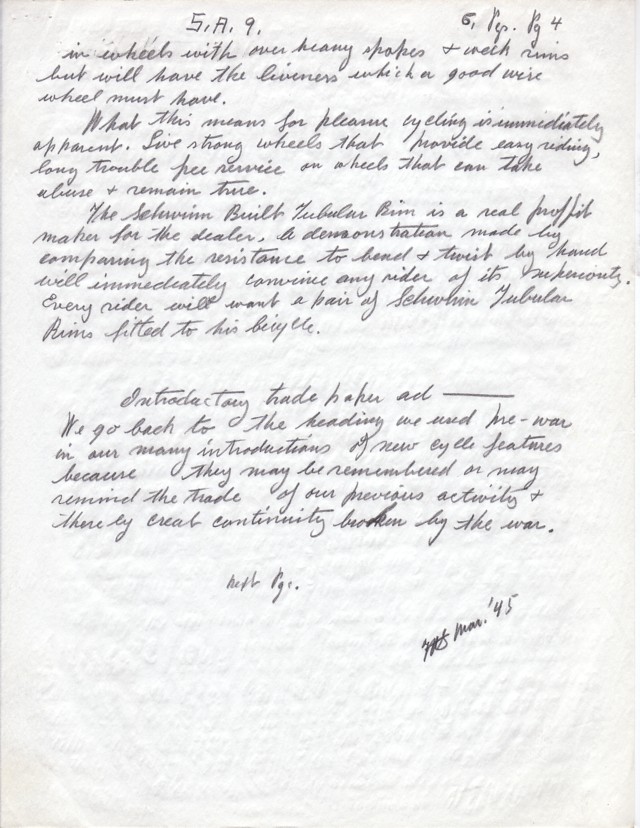 S.A. 9.
6. Pgs. Pg 4
in wheels with over heavy spokes + weak rims
but will have the liveness which a good wire
wheel must have.
What this means for pleasure cycling is immediately
apparent. Live strong wheels that provide easy riding,
long trouble free service on wheels that can take
abuse + remain true.
The Schwinn Built Tubular Rim is a real proffit
maker for the dealer. A demonstration made by
comparing the resistance to bend + twist by hand
will immediately convince any rider of its superiority.
Every rider will want a pair of Schwinn Tubular
Rims fitted to his bicycle.
Introductory trade paper ad —
We go back to the heading we used pre-war
in our many introductions of new cycle features
because they may be remembered or may
remind the trade of our previous activity +
thereby creat continuity broken by the war.
next Pge.
Mar. '45